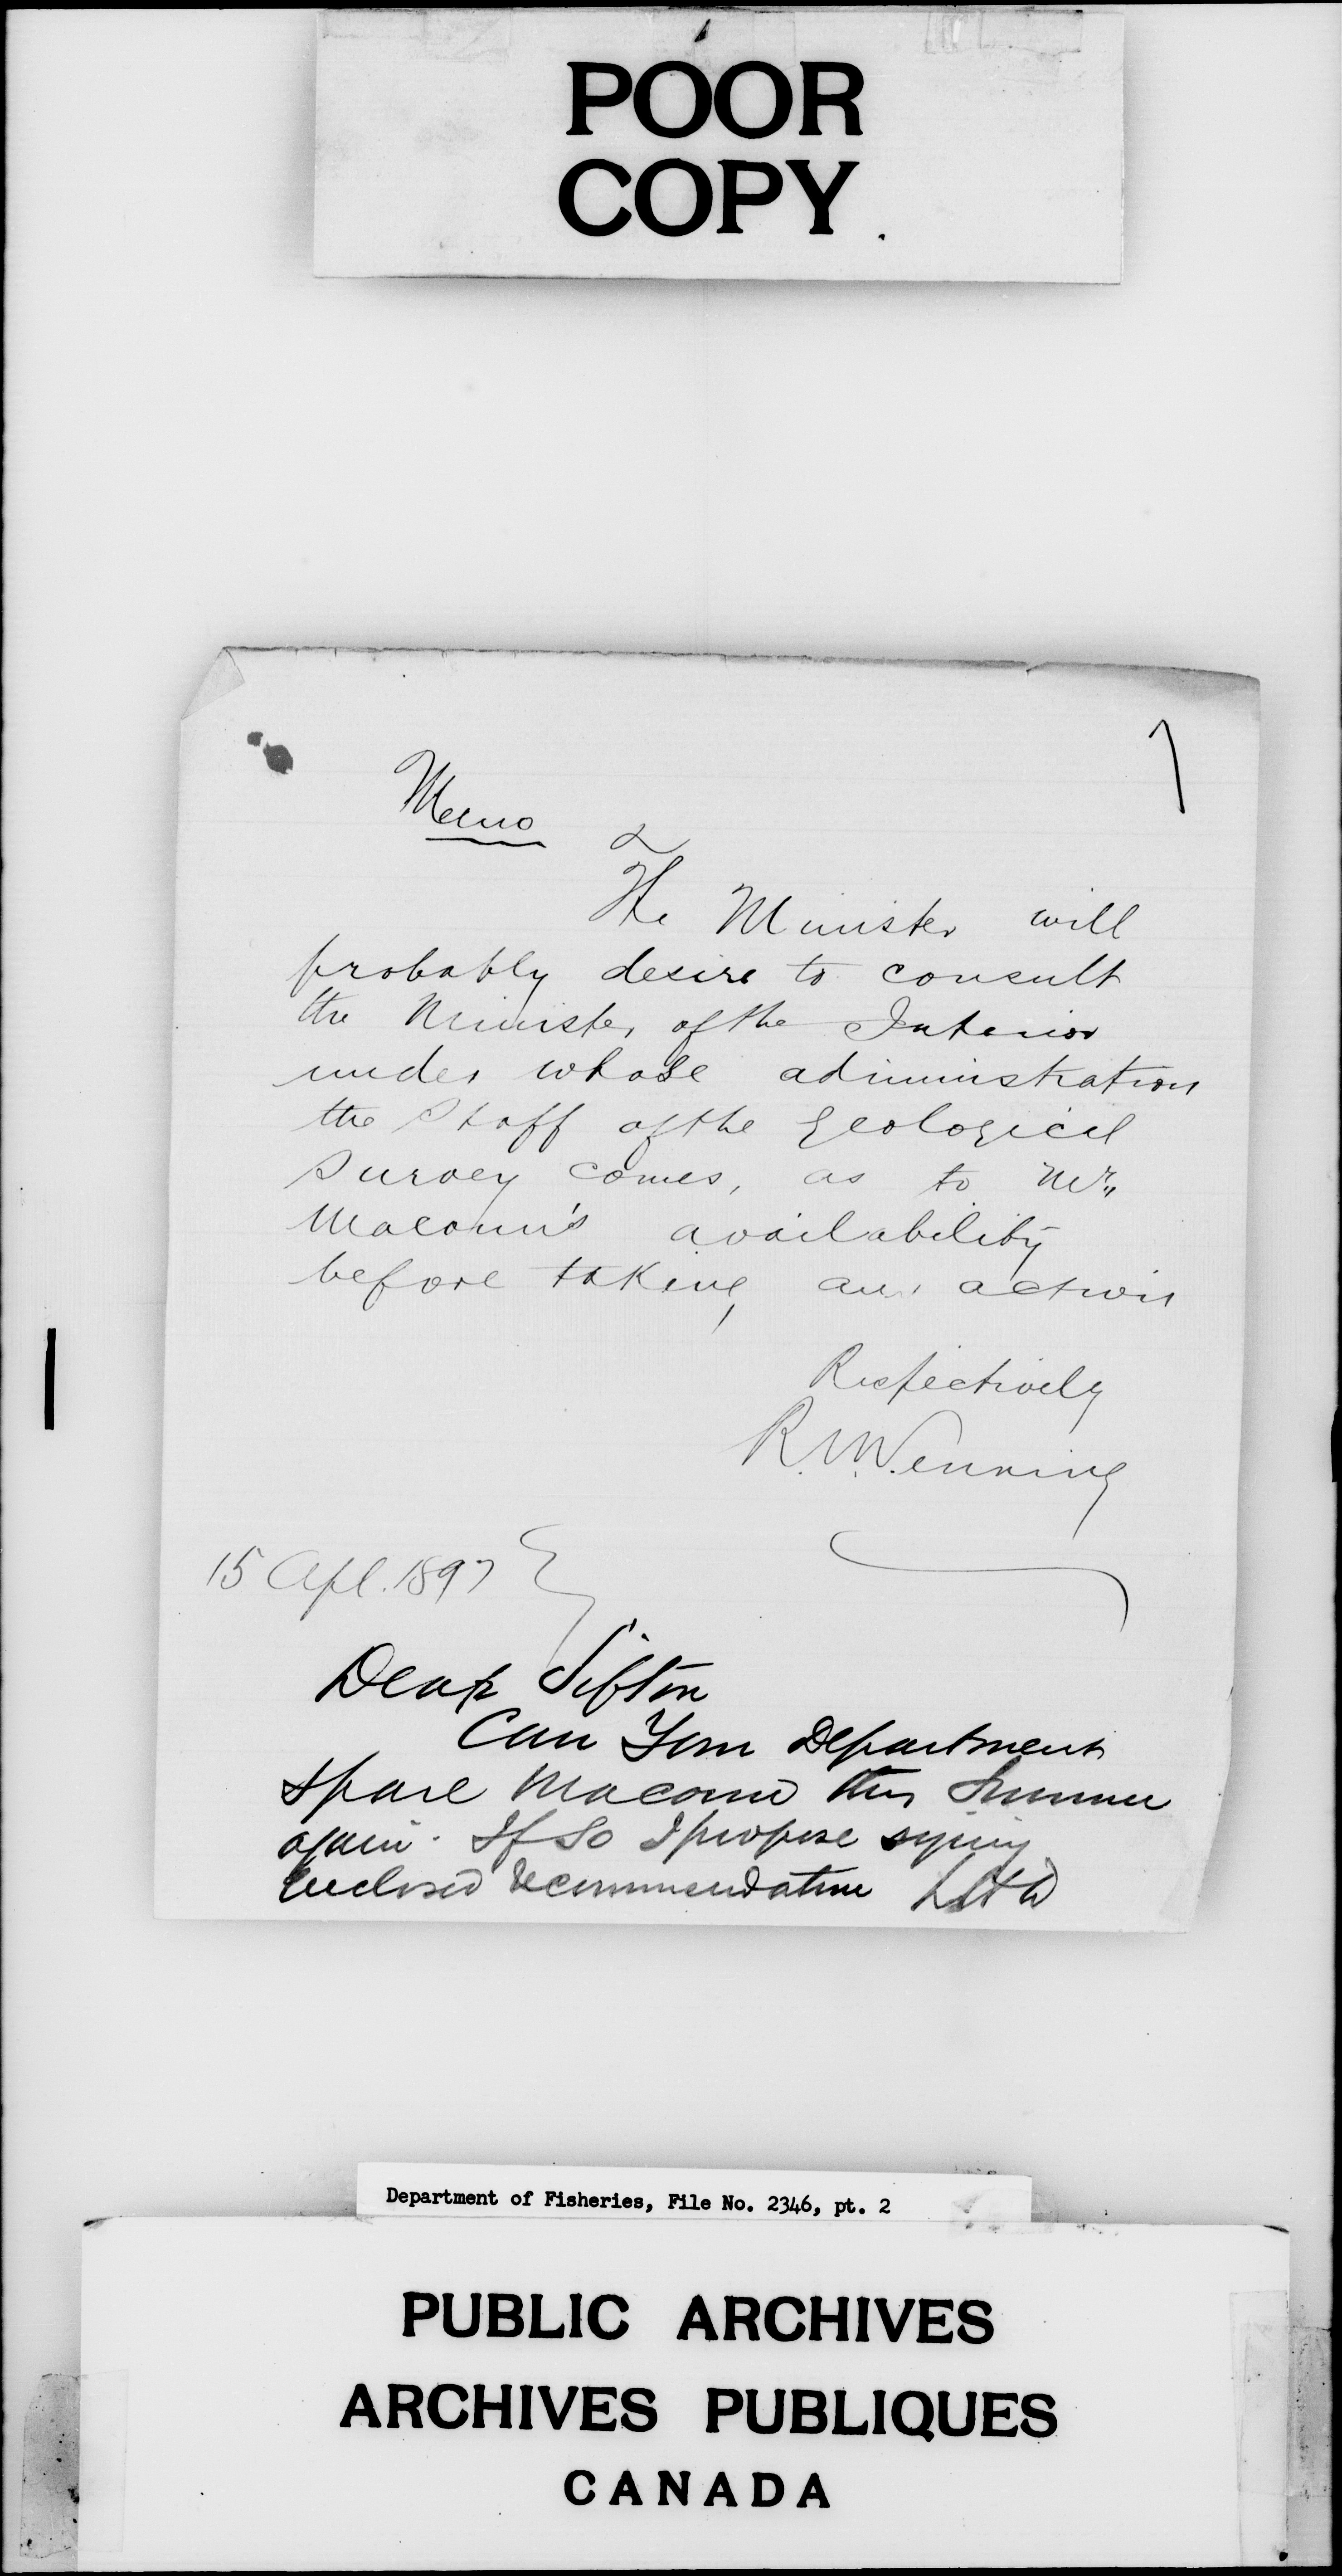 POOR
COPY
Memo
The Minister will
probably desire to consult
the Minister of the Interior
under whose administration
the Staff of the Geological
Survey comes, as to Mr.
Macoun's availability
before taking any action
Respectively
R. N. Venning
15 Apl. 1897
Dear Sifton
Can Your Department
spare Macoun this Summer
again. If so I propose signing
enclosed recommendation LHD
Department of Fisheries, File No. 2346, pt. 2
PUBLIC ARCHIVES
ARCHIVES PUBLIQUES
CANADA